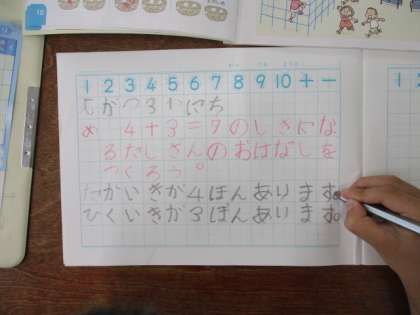 1 2 3 4 5 6 7 8 9 10 + −
がつ3いにち
め 4+3=7のしきにな
るたしざんのおはなしを
つくろう。
たかいきが4ほんあります。
ひくいきが3ぼんあります。